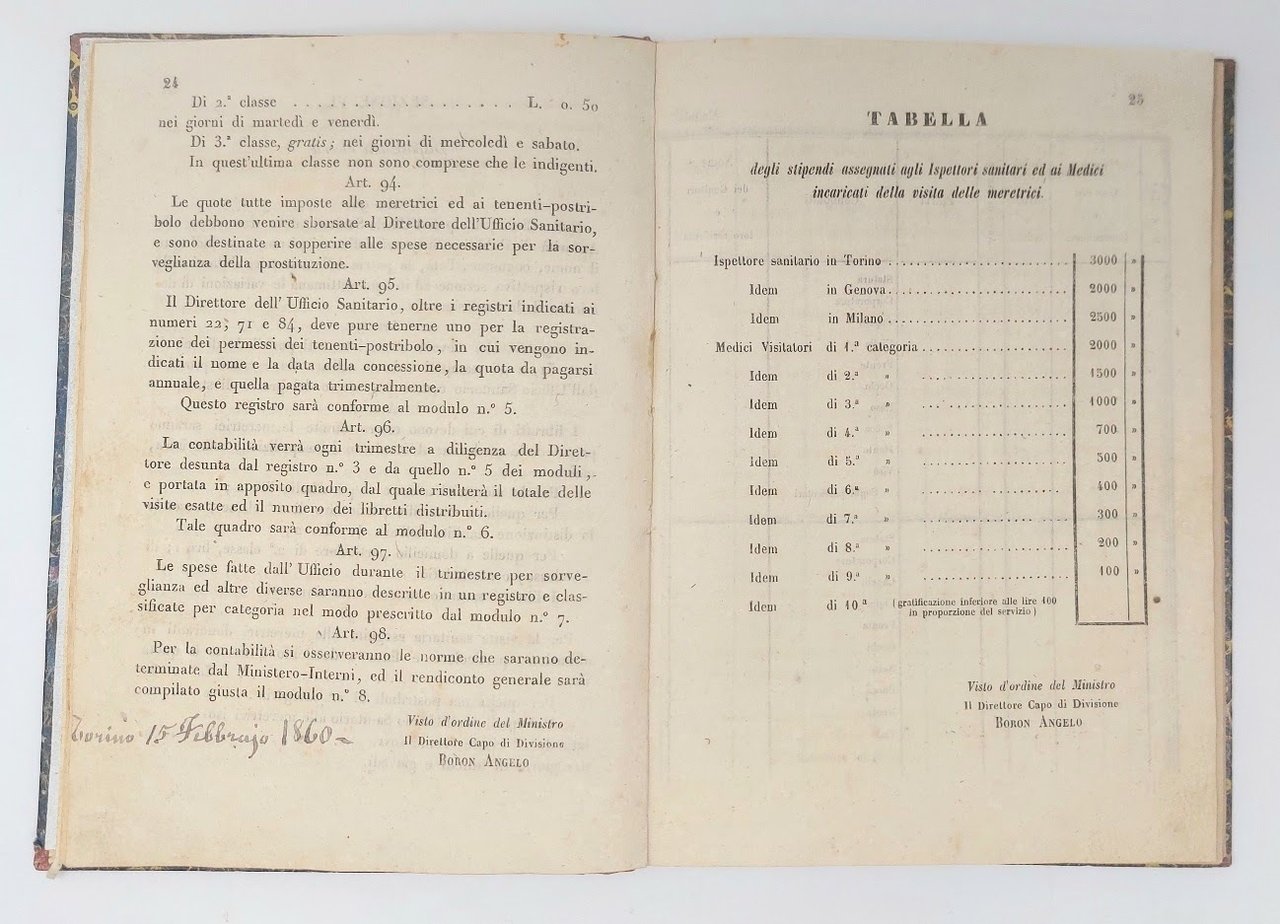 24
Di 2.ª classe . . . . . . . . . . . . . . . . . L. 0. 50
nei giorni di martedì e venerdì.
Di 3.ª classe, gratis; nei giorni di mercoledì e sabato.
In quest'ultima classe non sono comprese che le indigenti.
Art. 94.
Le quote tutte imposte alle meretrici ed ai tenenti-postri-
bolo debbono venire sborsate al Direttore dell'Ufficio Sanitario,
e sono destinate a sopperire alle spese necessarie per la sor-
veglianza della prostituzione.
Art. 95.
Il Direttore dell'Ufficio Sanitario, oltre i registri indicati ai
numeri 22, 71 e 84, deve pure tenerne uno per la registra-
zione dei permessi dei tenenti-postribolo, in cui vengono in-
dicati il nome e la data della concessione, la quota da pagarsi
annuale, e quella pagata trimestralmente.
Questo registro sarà conforme al modulo n.º 5.
Art. 96.
La contabilità verrà ogni trimestre a diligenza del Diret-
tore desunta dal registro n.º 3 e da quello n.º 5 dei moduli,
e portata in apposito quadro, dal quale risulterà il totale delle
visite esatte ed il numero dei libretti distribuiti.
Tale quadro sarà conforme al modulo n.º 6.
Art. 97.
Le spese fatte dall'Ufficio durante il trimestre per sorve-
glianza ed altre diverse saranno descritte in un registro e clas-
sificate per categoria nel modo prescritto dal modulo n.º 7.
Art. 98.
Per la contabilità si osserveranno le norme che saranno de-
terminate dal Ministero-Interni, ed il rendiconto generale sarà
compilato giusta il modulo n.º 8.
Torino 15 Febbrajo 1860
Visto d'ordine del Ministro
Il Direttore Capo di Divisione
BORON ANGELO
25
TABELLA
degli stipendi assegnati agli Ispettori sanitari ed ai Medici
incaricati della visita delle meretrici.
Ispettore sanitario in Torino . . . . . . . . . . 3000 »
Idem in Genova . . . . . . . . . . 2000 »
Idem in Milano . . . . . . . . . . 2500 »
Medici Visitatori di 1.ª categoria . . . . . . . . . . 2000 »
Idem di 2.ª » . . . . . . . . . . 1500 »
Idem di 3.ª » . . . . . . . . . . 1000 »
Idem di 4.ª » . . . . . . . . . . 700 »
Idem di 5.ª » . . . . . . . . . . 500 »
Idem di 6.ª » . . . . . . . . . . 400 »
Idem di 7.ª » . . . . . . . . . . 300 »
Idem di 8.ª » . . . . . . . . . . 200 »
Idem di 9.ª » . . . . . . . . . . 100 »
Idem di 10.ª (gratificazione inferiore alle lire 100
in proporzione del servizio)
Visto d'ordine del Ministro
Il Direttore Capo di Divisione
BORON ANGELO